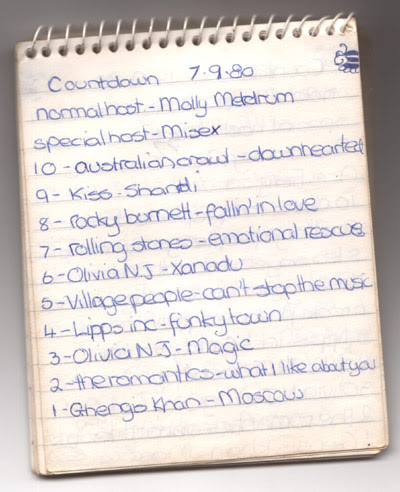 Countdown 7.9.80
normal host - Molly Meldrum
special host - Misex
10 - australian crawl - downhearted
9 - Kiss - Shandi
8 - rocky burnett - fallin' in love
7 - rolling stones - emotional rescue
6 - Olivia N.J - Xanadu
5 - Village people - can't stop the music
4 - Lipps inc - funky town
3 - Olivia N.J - Magic
2 - the romantics - what I like about you
1 - Ghengis Khan - Moscow